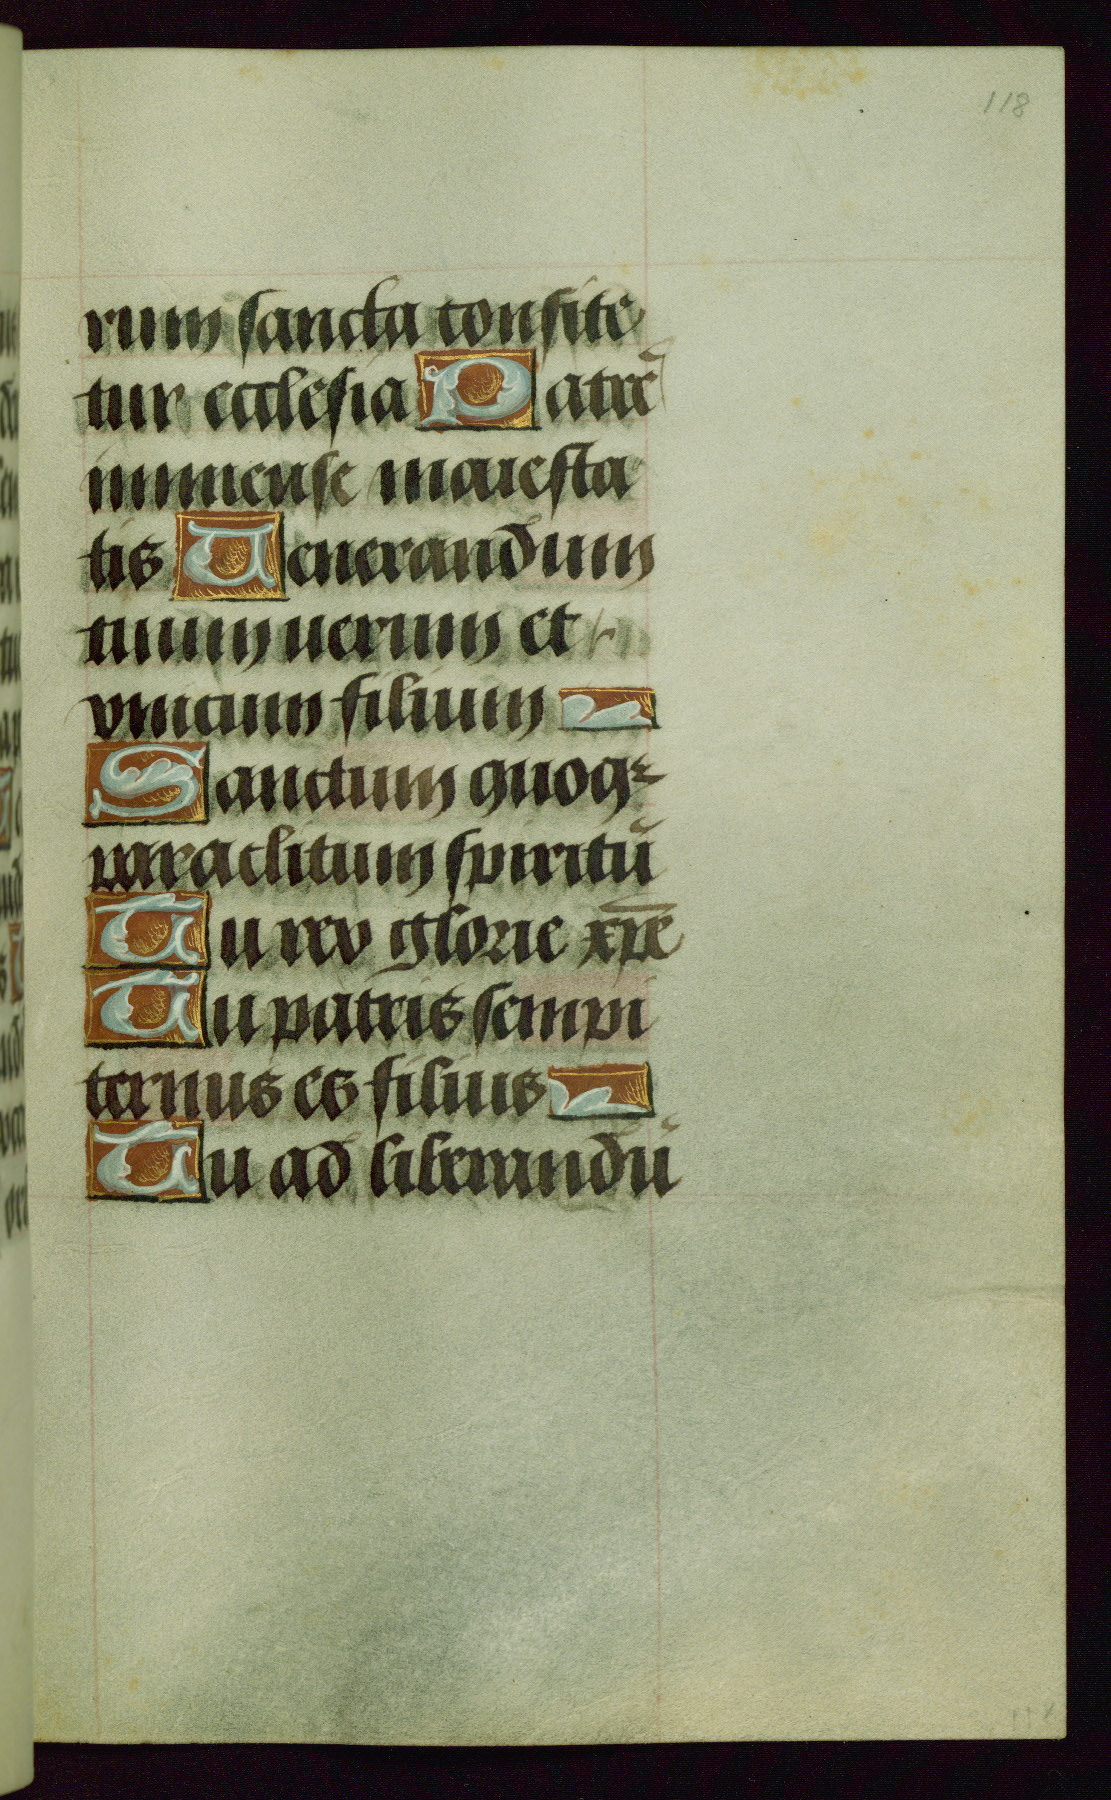 118
rum sancta confite
tur ecclesia Patrẽ
immense maiesta
tis Venerandum
tuum uerum et
vnicum filium
Sanctum quoq
paraclitum spiritũ
Tu rex glorie xp̃e
Tu patris sempi
ternus es filius
Tu ad liberandũ